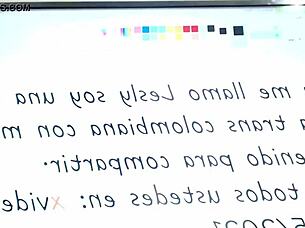 S.COM
me llamo Lesly soy una
a trans colombiana con m
enido para compartir.
todos ustedes en: xvide